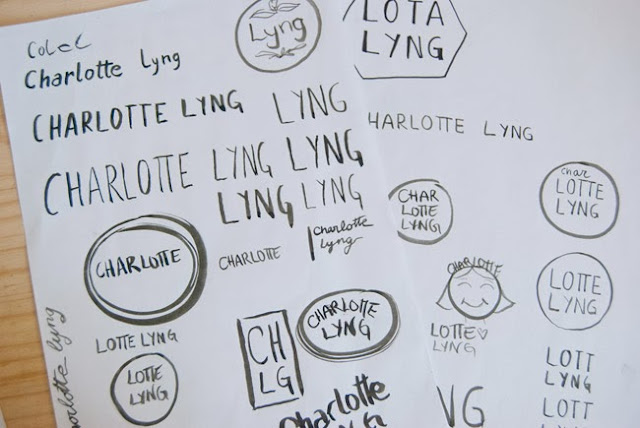 Colel
Charlotte Lyng
Lyng
LOTA
LYNG
CHARLOTTE LYNG
LYNG
HARLOTTE LYNG
CHARLOTTE LYNG LYNG
LYNG LYNG
char
LOTTE
LYNG
CHAR
LOTTE
LYNG
CHARLOTTE
CHARLOTTE
charlotte
Lyng
CHARLOTTE
LOTTE
LYNG
LOTTE♡
LYNG
CHARLOTTE
LYNG
CH
LG
LOTTE LYNG
LOTTE
LYNG
harlotte lyng
Charlotte
LYNG
VG
LOTT
LYNG
LOTT
LYNG